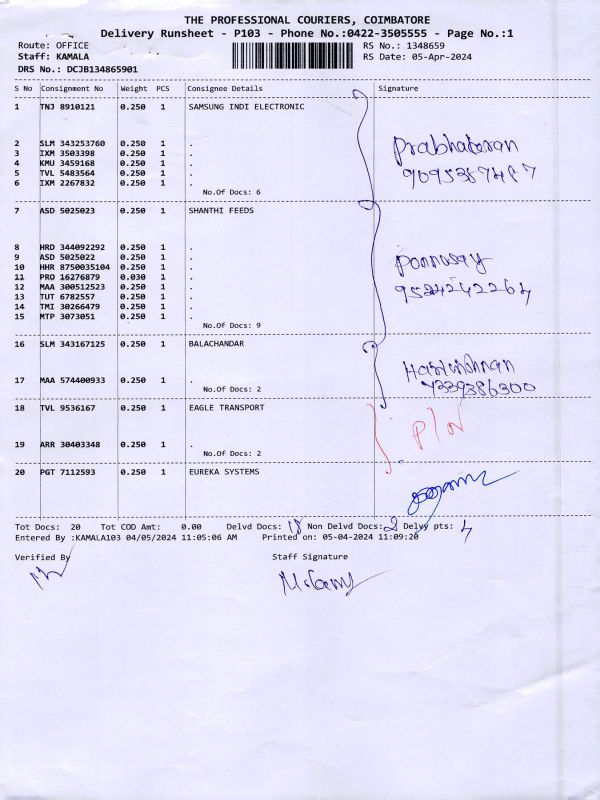 THE PROFESSIONAL COURIERS, COIMBATORE
Delivery Runsheet - P103 - Phone No.:0422-3505555 - Page No.:1
Route: OFFICE RS No.: 1348659
Staff: KAMALA RS Date: 05-Apr-2024
DRS No.: DCJB134865901
S No Consignment No Weight PCS Consignee Details Signature
1 TNJ 8910121 0.250 1 SAMSUNG INDI ELECTRONIC
2 SLM 343253760 0.250 1 . Prabhakaran
3 IXM 3503398 0.250 1 .
4 KMU 3459168 0.250 1 .
5 TVL 5483564 0.250 1 .
6 IXM 2267832 0.250 1 .
No.Of Docs: 6
7 ASD 5025023 0.250 1 SHANTHI FEEDS
8 HRD 344092292 0.250 1 .
9 ASD 5025022 0.250 1 . Ponnusay
10 HHR 8750035104 0.250 1 .
11 PRO 16276879 0.030 1 .
12 MAA 300512523 0.250 1 . 9524242264
13 TUT 6782557 0.250 1 .
14 TMI 30266479 0.250 1 .
15 MTP 3073051 0.250 1 .
No.Of Docs: 9
16 SLM 343167125 0.250 1 BALACHANDAR
17 MAA 574400933 0.250 1 .
No.Of Docs: 2 7339386300
18 TVL 9536167 0.250 1 EAGLE TRANSPORT
P/N
19 ARR 30403348 0.250 1 .
No.Of Docs: 2
20 PGT 7112593 0.250 1 EUREKA SYSTEMS
Tot Docs: 20 Tot COD Amt: 0.00 Delvd Docs: 18 Non Delvd Docs: 2 Delvy pts: 4
Entered By :KAMALA103 04/05/2024 11:05:06 AM Printed on: 05-04-2024 11:09:20
Verified By Staff Signature